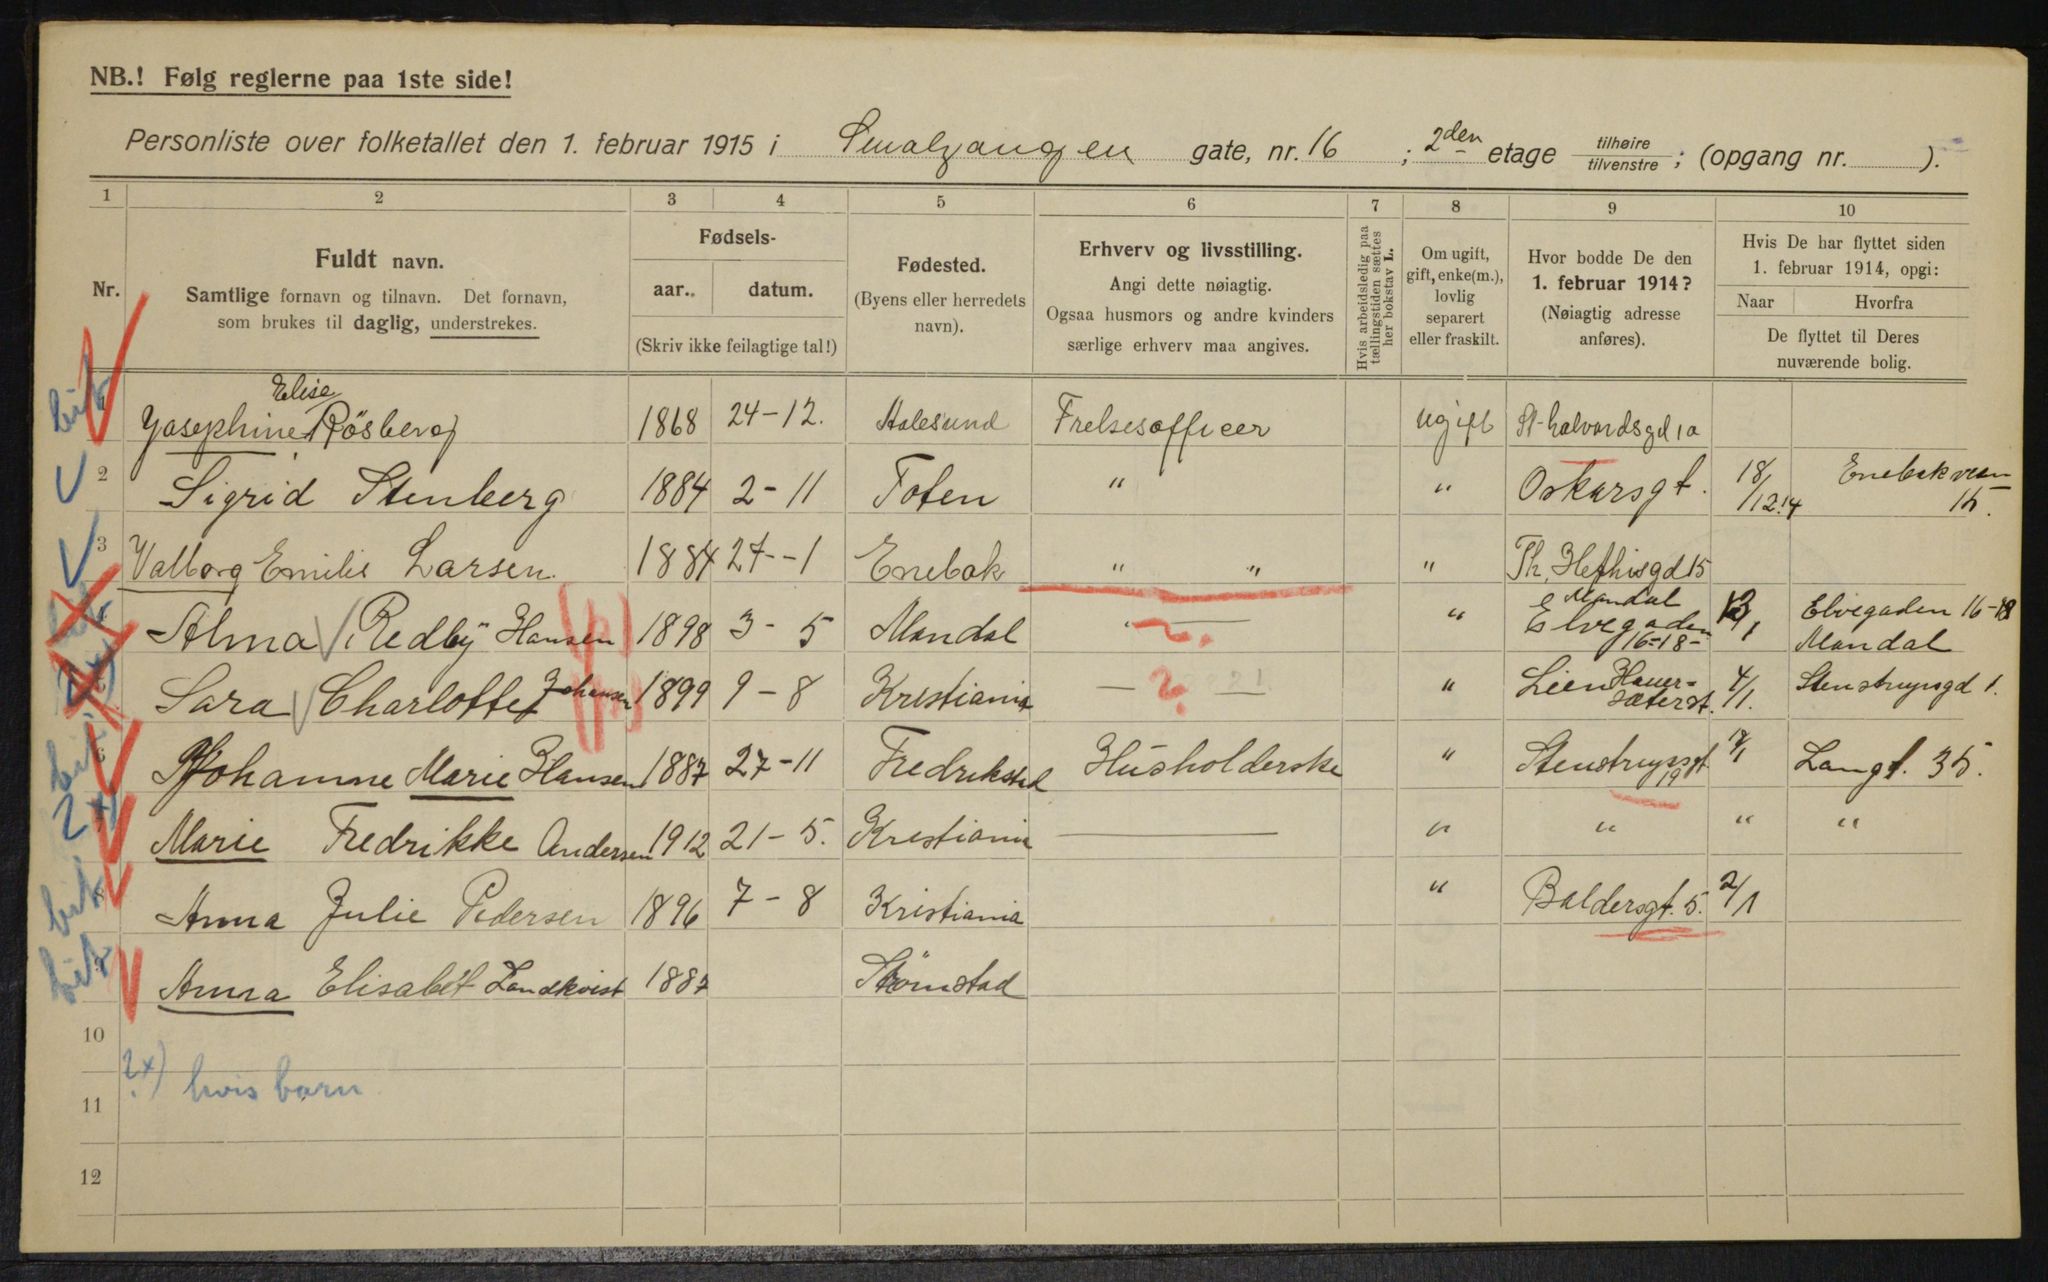 NB.! Følg reglerne paa 1ste side!
Personliste over folketallet den 1. februar 1915 i Smalgangen gate, nr. 16; 2den etage tilhøire / tilvenstre; (opgang nr. ).
1 2 3 4 5 6 7 8 9 10
Nr.
Fuldt navn.
Samtlige fornavn og tilnavn. Det fornavn,
som brukes til daglig, understrekes.
Fødsels-
aar. datum.
(Skriv ikke feilagtige tal!)
Fødested.
(Byens eller herredets
navn).
Erhverv og livsstilling.
Angi dette nøiagtig.
Ogsaa husmors og andre kvinders
særlige erhverv maa angives.
Hvis arbeidsledig paa
tællingstiden sættes
her bokstav L.
Om ugift,
gift, enke(m.),
lovlig
separert
eller fraskilt.
Hvor bodde De den
1. februar 1914?
(Nøiagtig adresse
anføres).
Hvis De har flyttet siden
1. februar 1914, opgi:
Naar Hvorfra
De flyttet til Deres
nuværende bolig.
Elise
Josephine Rösberg 1868 24-12. Aalesund Frelsesofficer ugift St-halvardsgd 1a
2 Sigrid Stenberg 1884 2-11 Toten " " Oskarsgt. 18/12.14 Enebakveien 15.
3 Valborg Emilie Larsen 1884 27-1 Enebak " " " Th. Hefthisgd 15
4 Alma Redby Hansen 1898 3-5 Mandal " — ? " Mandal Elvegaden 16-18- Elvegaden 16-18 Mandal
5 Sara Charlotte Johansen 1899 9-8 Kristiania — ? " 4/1. Stenstrupsgd 1.
6 Johanne Marie Hansen 1887 27-11 Fredrikstad Husholderske " Stenstrupsgt 19 Langt. 35.
Marie Fredrikke Andersen 1912 21-5. Kristiania — " " " "
8 Anna Julie Pedersen 1896 7-8 Kristiania " Baldersgt. 5. 2/1
9 Anna Elisabet Landkvist 1887 Strömstad
10
?x) hvis barn
11
12